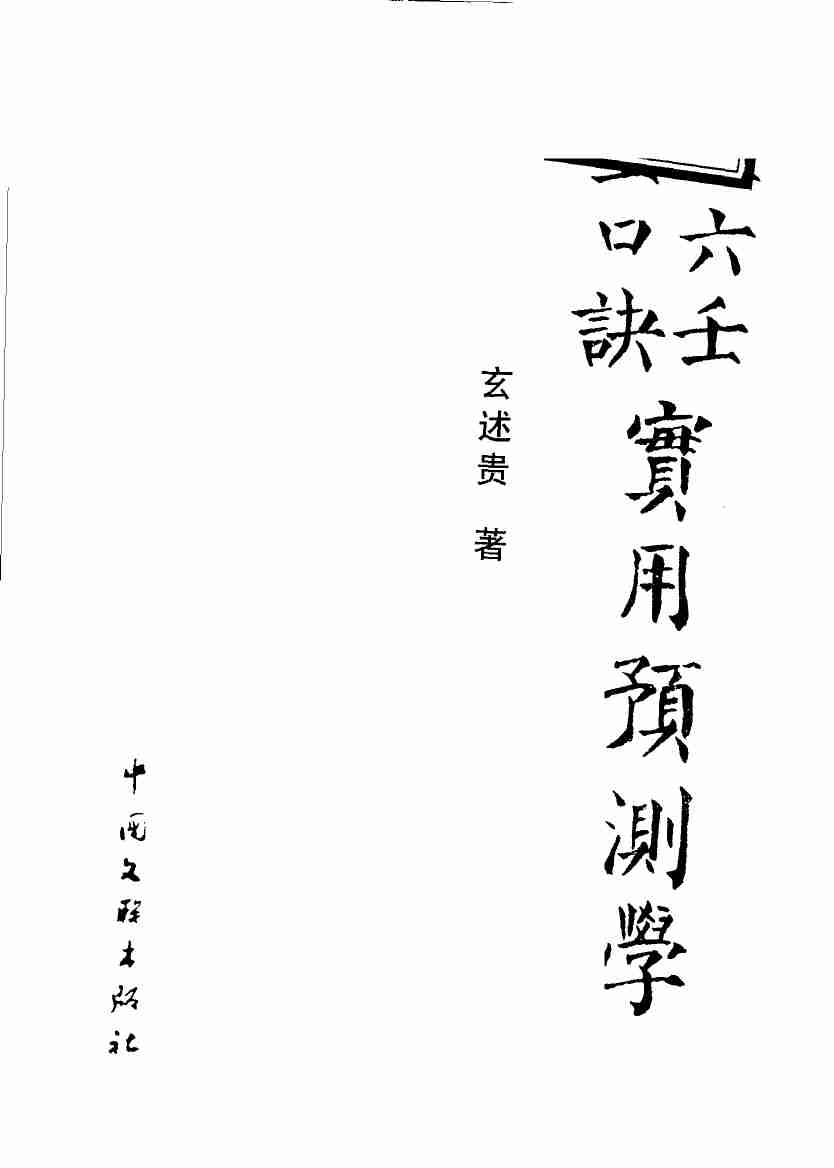 六壬
口訣
實用預測學
玄述贵 著
中国文联出版社